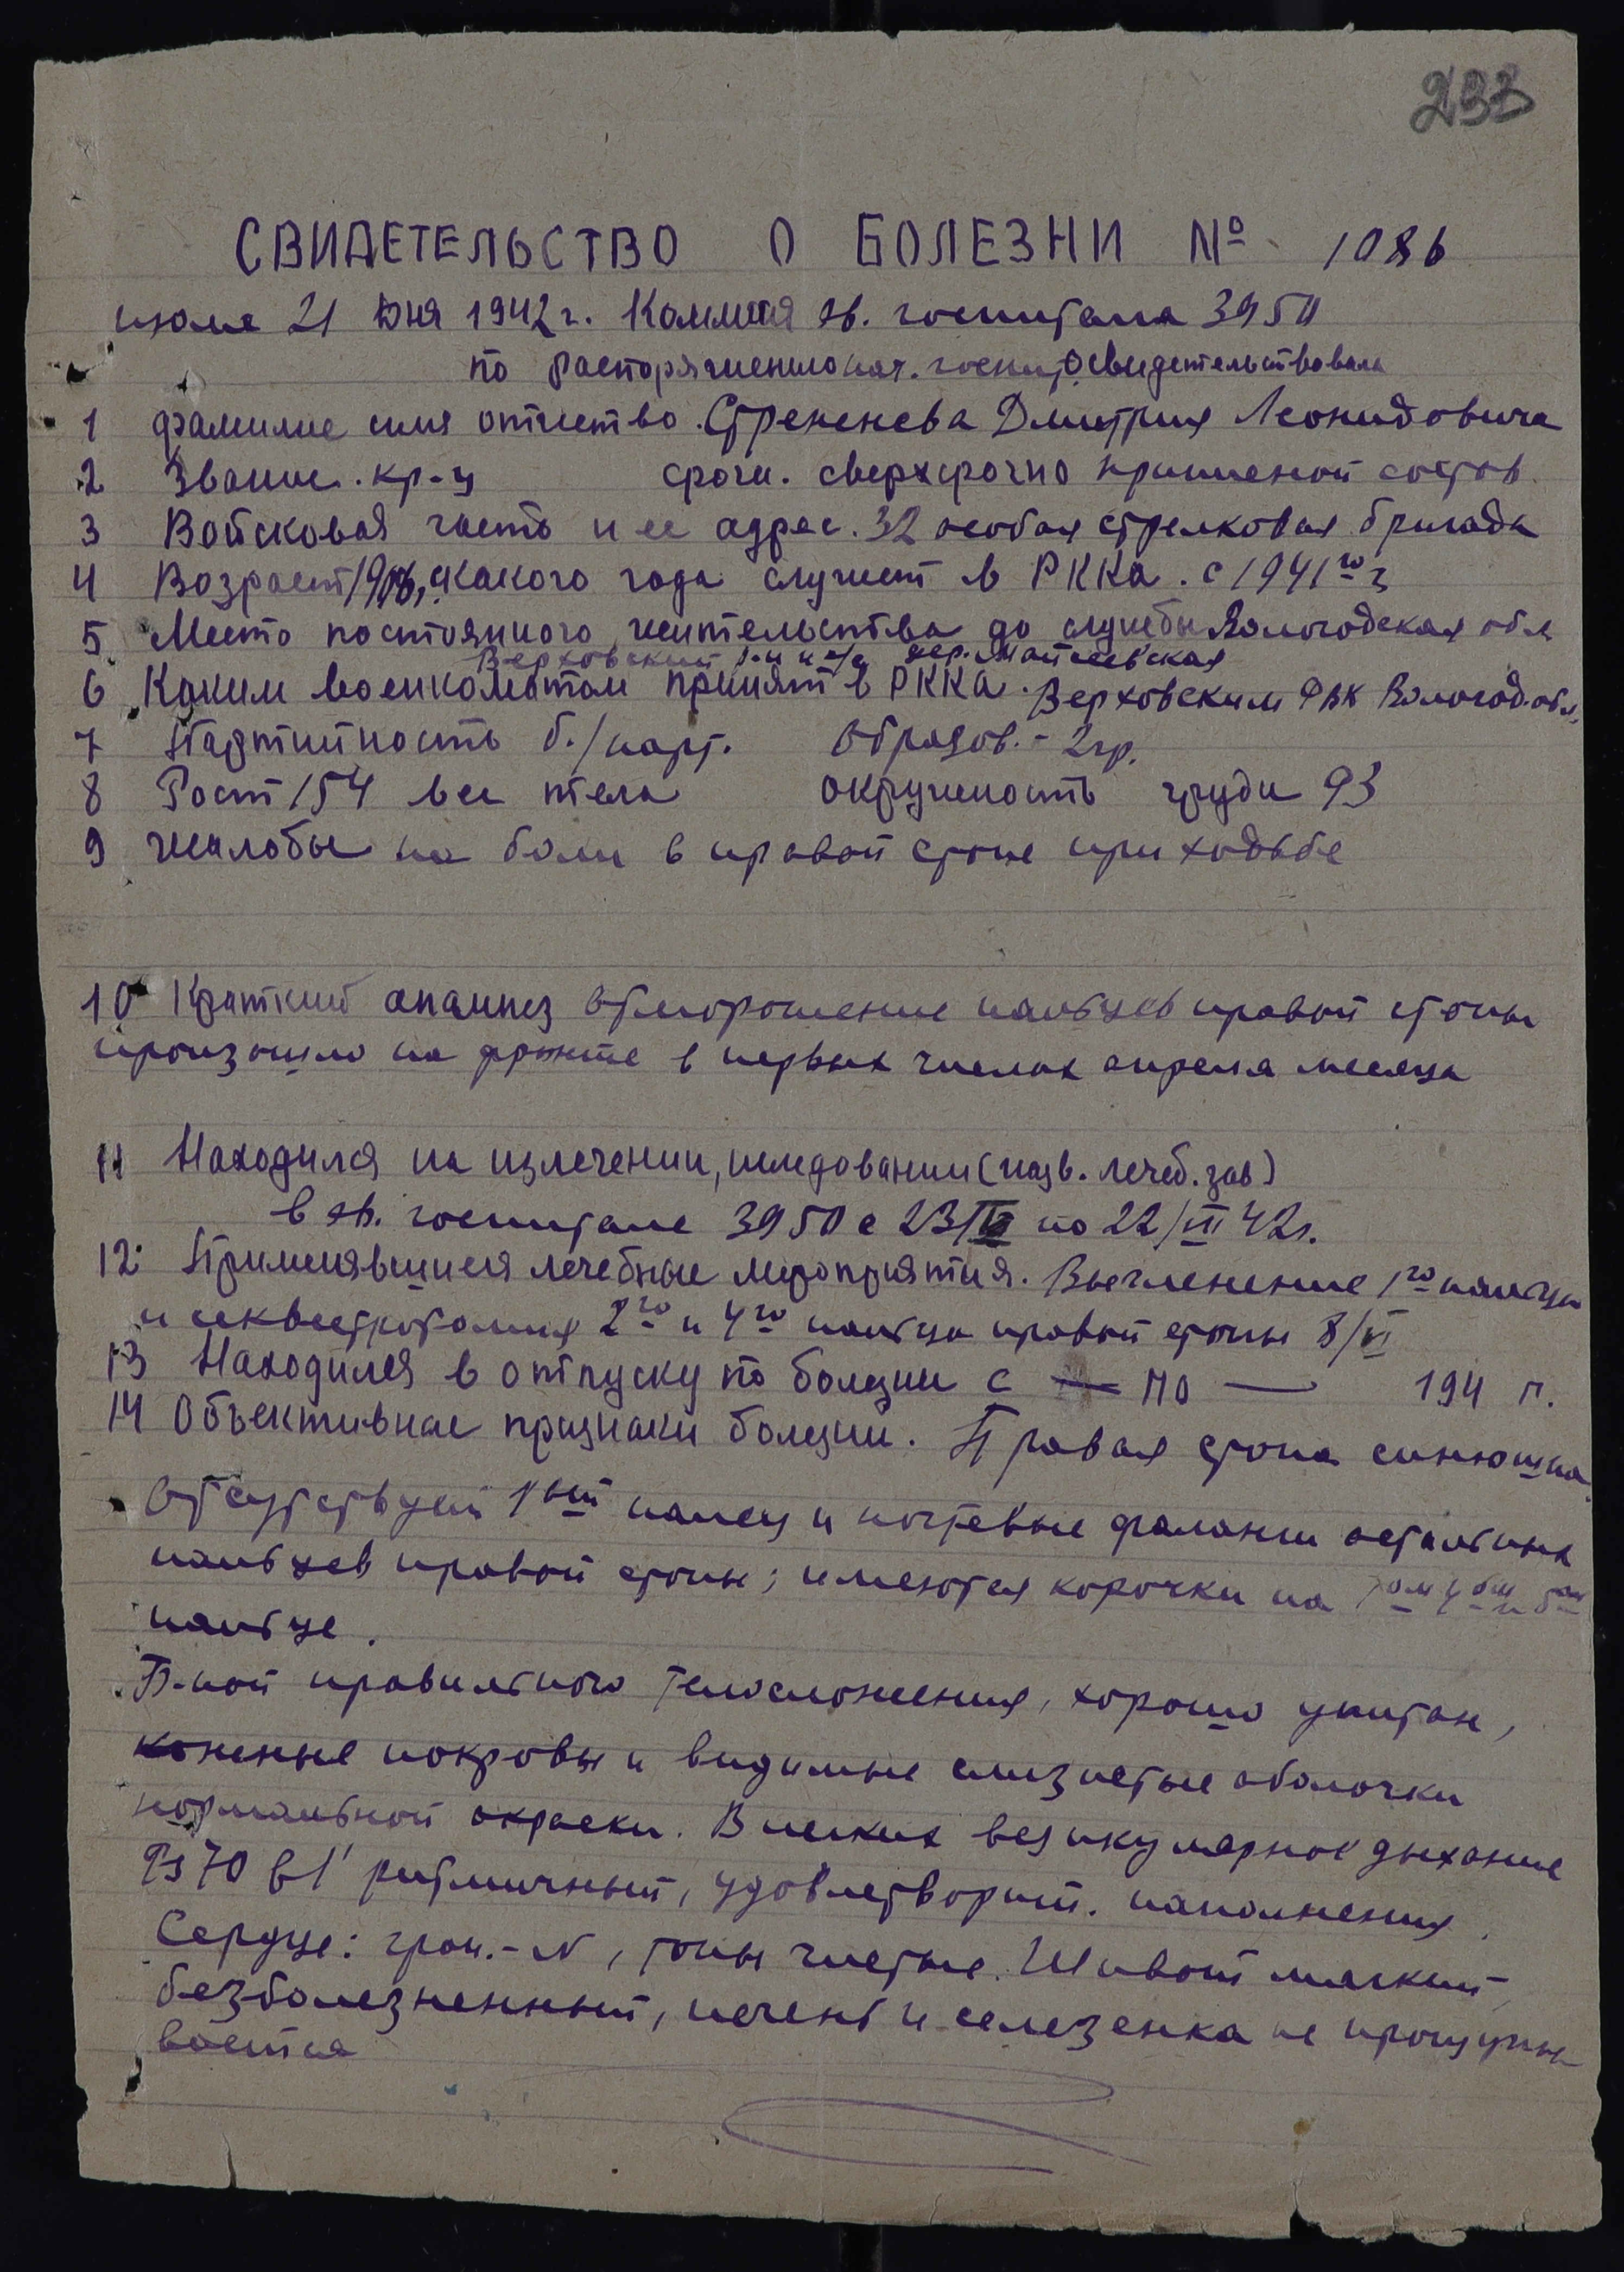 233
СВИДЕТЕЛЬСТВО О БОЛЕЗНИ № 1086
июля 21 дня 1942 г. Комиссия эв. госпиталя 3950
по распоряжению нач. госпит. освидетельствовала
1 фамилие имя отчество. Стрененева Дмитрия Леонидовича
2 Звание. кр-ц срочн. сверхсрочно приписной состав
3 Войсковая часть и ее адрес. 32 особая стрелковая бригада
4 Возраст какого года служит в РККА. с 1941 го г
5 Место постоянного жительства до службы Вологодская обл.
Верховский р-н дер. Матвеевская
6 Каким военкоматом принят в РККА. Верховским РВК Вологод. обл.
7 Партийность б./парт. Образов. - 2 гр.
8 Рост 154 вес тела окружность груди 93
9 жалобы на боли в правой стопе при ходьбе
10 Краткий анамнез Отморожение пальцев правой стопы
произошло на фронте в первых числах апреля месяца
11 Находился на излечении, исследовании (назв. лечеб. зав)
в эв. госпитале 3950 с 23/ по 22/VII 42 г.
12 Применявшиеся лечебные мероприятия. Вычленение 1го пальца
и секвестротомия 2го и 4го пальца правой стопы 8/VI
13 Находился в отпуску по болезни с — по — 194 г.
14 Объективные признаки болезни. Правая стопа синюшна.
Отсутствует 1ый палец и ногтевые фаланги остальных
пальцев правой стопы; имеются корочки на 4ом и 5ом
пальце.
Б-ной правильного телосложения, хорошо упитан,
кожные покровы и видимые слизистые оболочки
нормальной окраски. В легких везикулярное дыхание
Ps 70 в 1' ритмичный, удовлетворит. наполнения.
Сердце: гран. - N, тоны чистые. Живот мягкий
безболезненный, печень и селезенка не прощупы-
вается